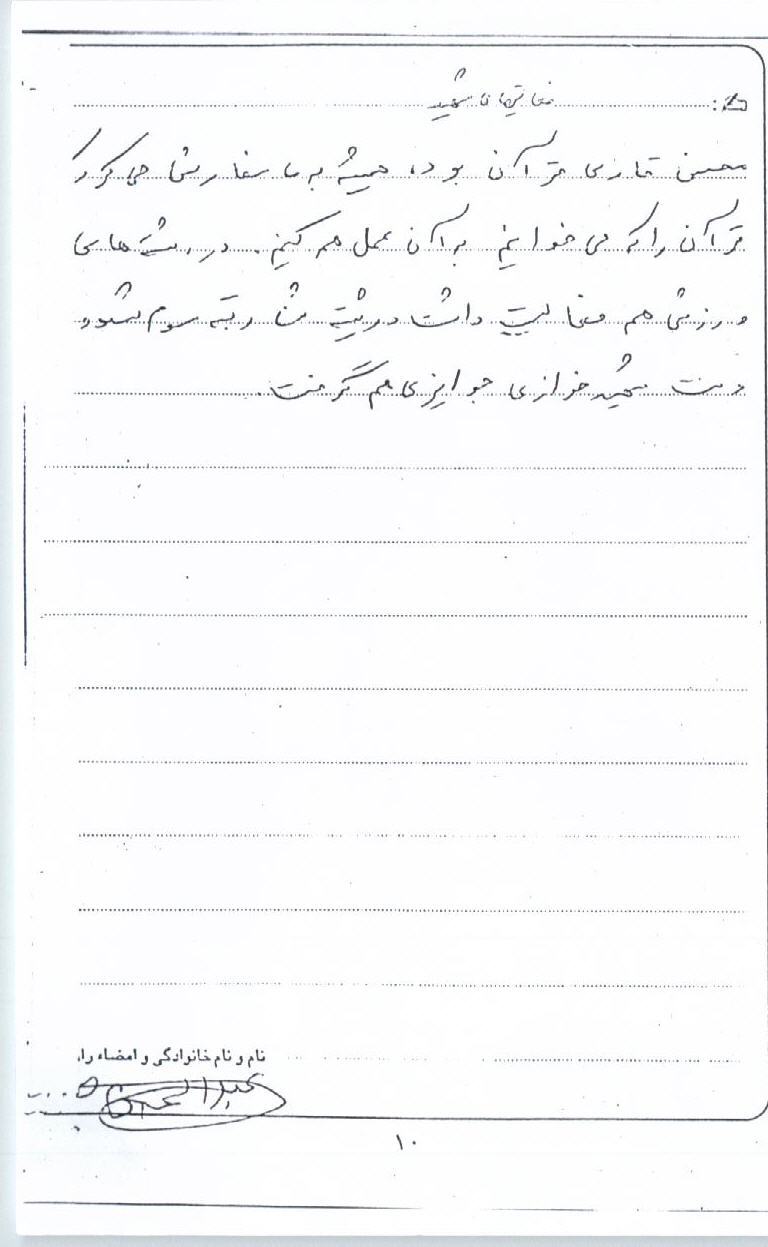 فعالیتهای شهید
محسن قاری قرآن بود، همیشه به ما سفارش می کرد که
قرآن را که می خوانیم به آن عمل هم کنیم. در رشته های
ورزشی هم فعالیت داشت در رشته شنا رتبه سوم شد و
دست شهید خرازی جوایزی هم گرفت.
نام و نام خانوادگی و امضاء راوی
۱۰